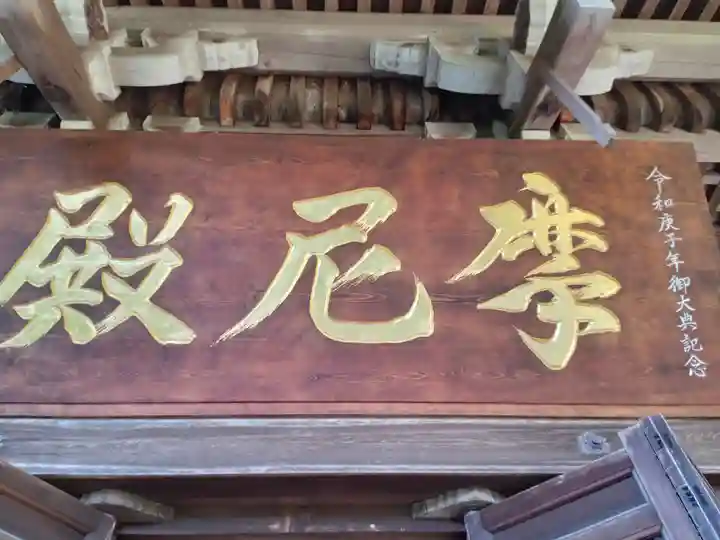 摩尼殿
令和庚子年御大典記念